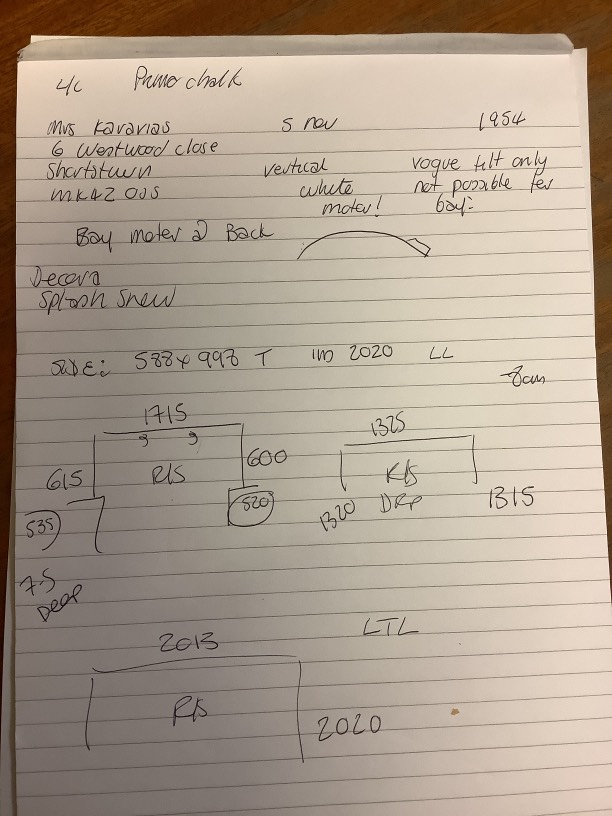 4/c Primo chalk
Mrs Karavias 5 nov 1954
6 Westwood close
Shortstown vertical vogue tilt only
MK42 0DS white not possible for
motor! bay:
Bay motor @ Back
Decora
Splash Snow
SIDE: 588 x 998 T 1m 2020 LL
8cm
1715 1325
615 R/S 600 K/S
535 520 1320 DRP 1315
75
Deep
2013 LTL
R/S 2020